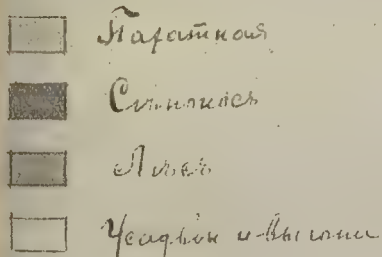 Пахатная
Сѣнокосъ
Лѣсъ
Усадьбы и выгоны